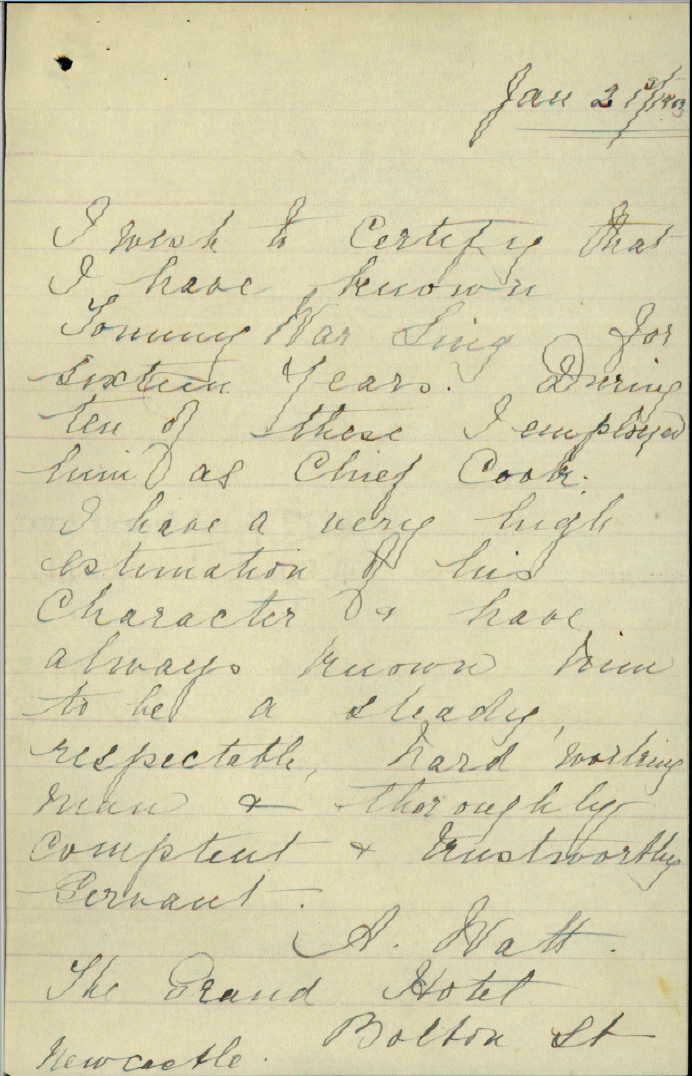 Jan 21st/1903
I wish to Certify that
I have known
Tommy War Sing for
sixteen Years. During
ten of these I employed
him as Chief Cook.
I have a very high
estimation of his
Character & have
always known him
to be a steady,
respectable, hard working
man & thoroughly
comptent & trustworthy
Servant.
A. Watt.
The Grand Hotel
Bolton St
Newcastle.